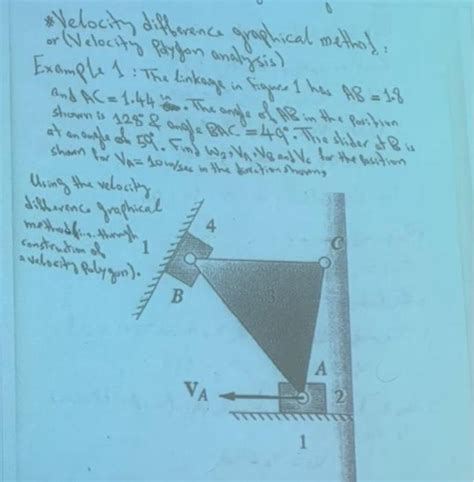 *Velocity difference graphical method:
or (Velocity Polygon analysis)
Example 1: The linkage in Figure 1 has AB = 1.8
and AC = 1.44 The angle of AB in the position
shown is 128° & angle BAC = 49°. The slider at B is
at an angle of 59°. Find W3, VA, VB and Vc for the position
shown for VA = 10 in/sec in the direction shown,
Using the velocity
difference graphical
method through
construction of
a velocity Polygon).
4
1
B
C
3
A
VA
2
1